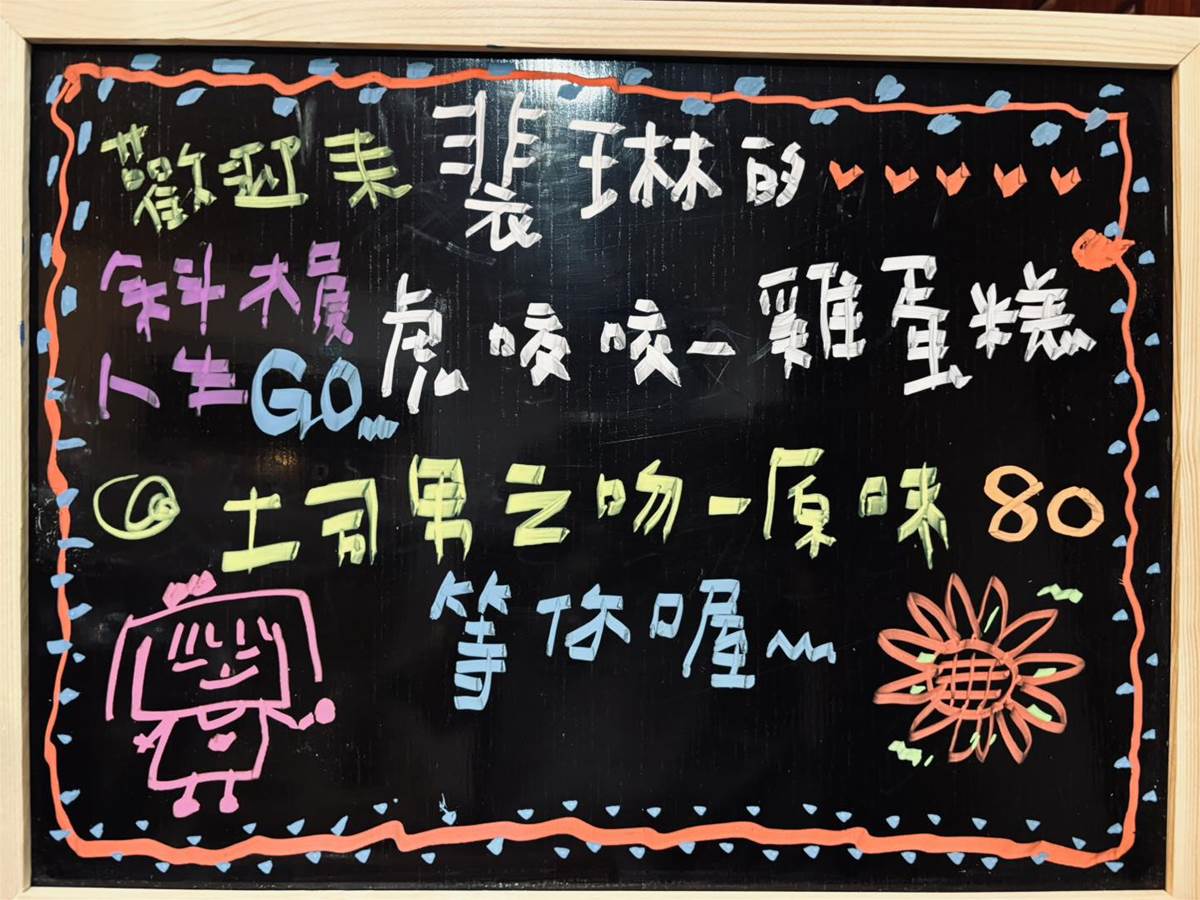 歡迎來裴琳的
斜槓人生GO
虎咬咬-雞蛋糕
土司男之吻-原味 80
等你喔~